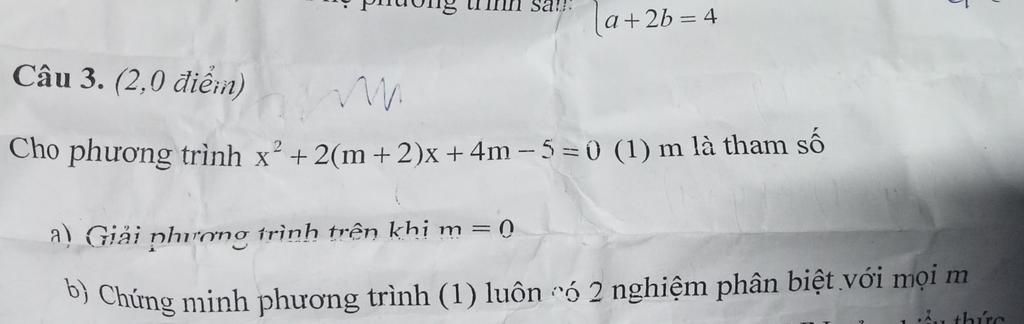 phương trình sau:
a + 2b = 4
Câu 3. (2,0 điểm)
Cho phương trình x² + 2(m + 2)x + 4m − 5 = 0 (1) m là tham số
a) Giải phương trình trên khi m = 0
b) Chứng minh phương trình (1) luôn có 2 nghiệm phân biệt với mọi m
thức